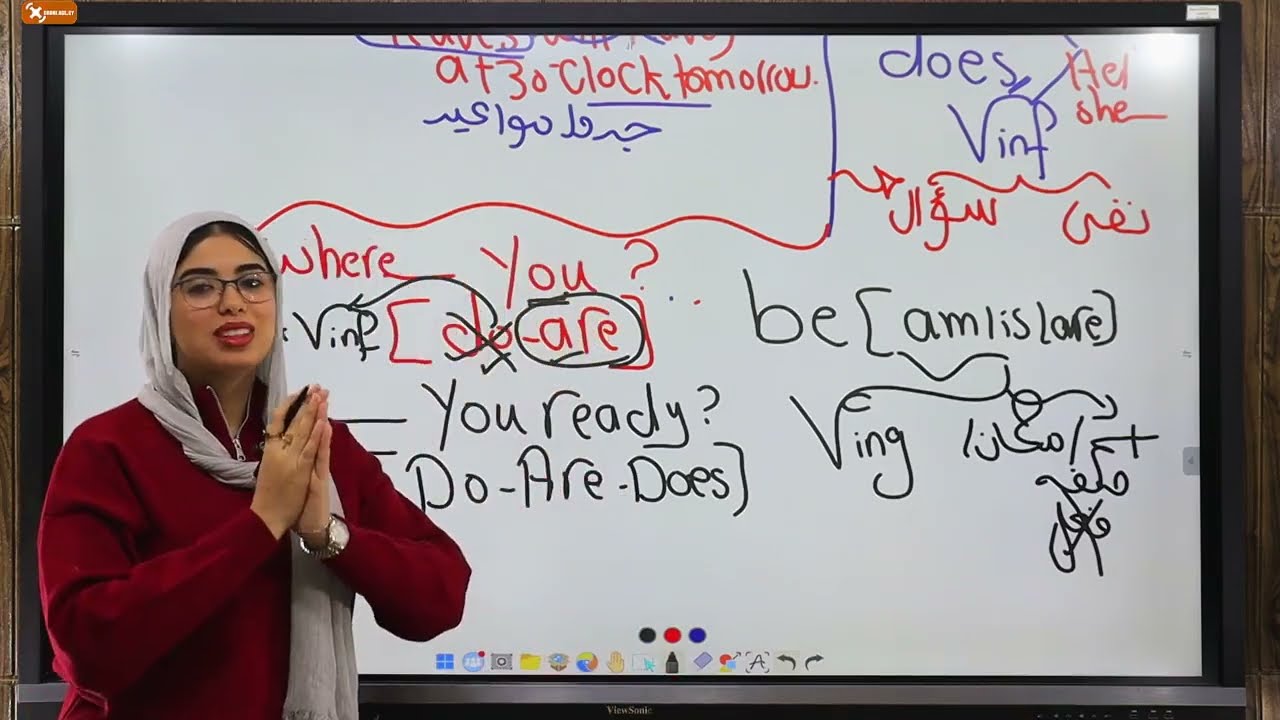 at 3 o'clock tomorrow.
جدول مواعيد
does He
she
Vinf
سؤال نفى
where You ?
Vinf [do-are]
be [am/is/are)
You ready?
[Do-Are-Does]
Ving
مكان /
صفة
فعل
ViewSonic